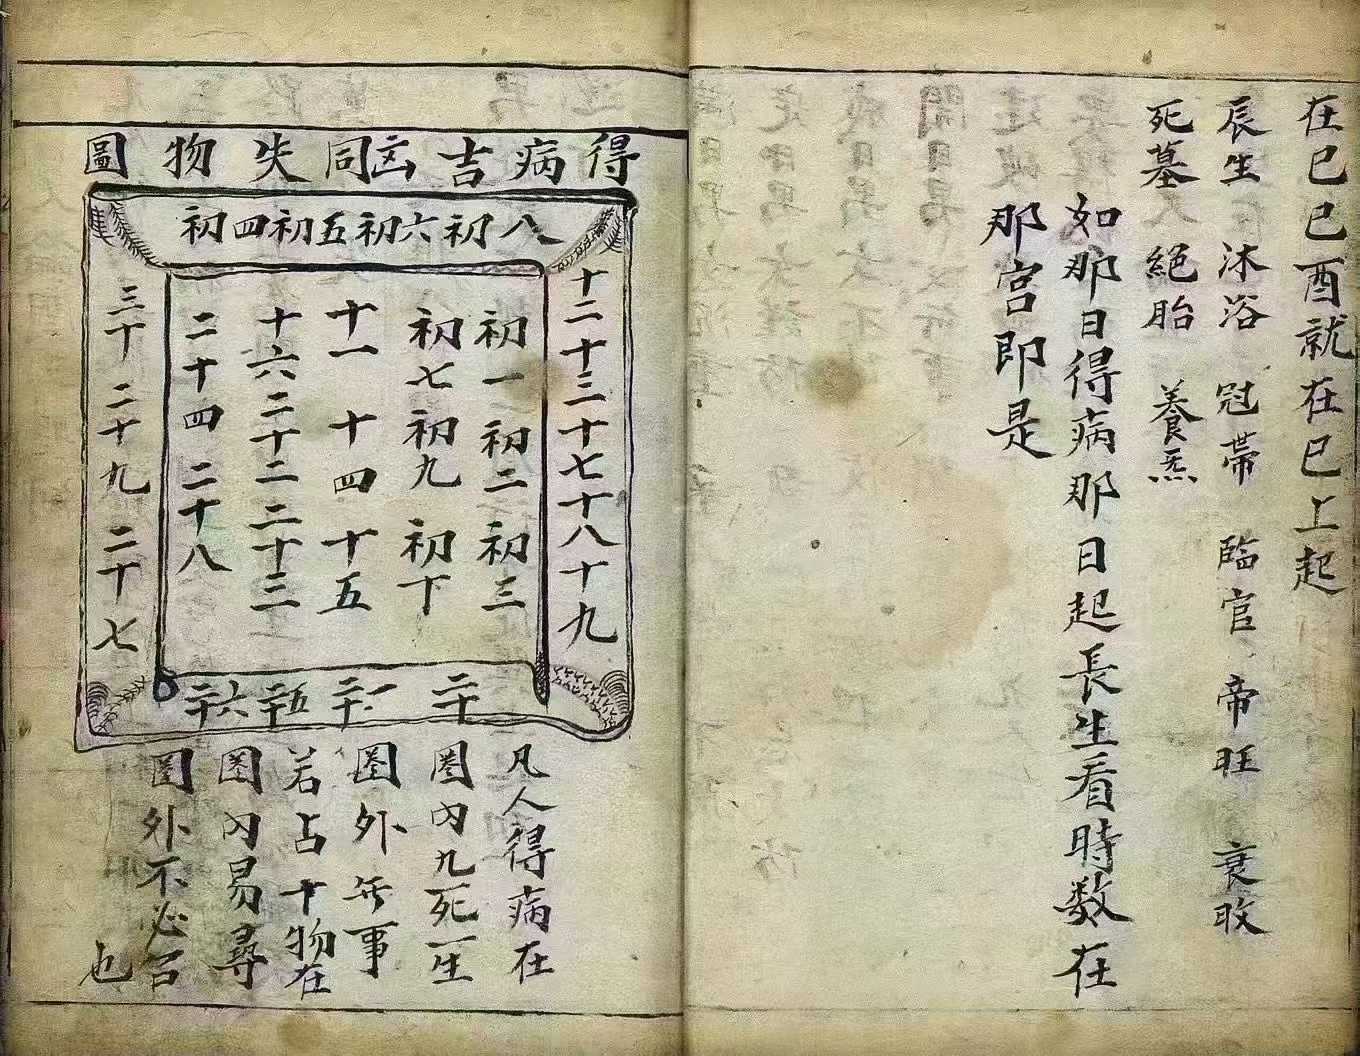 在巳巳酉就在巳上起
辰生 沐浴 冠帯 臨官 帝旺 衰敗
死墓 絕胎 養炁
如那日得病那日起長生看時数在
那宮即是
得病吉凶同失物圖
八初六初五初四初
十二十三十七十八十九
初一初二初三
初七初九初下
十一十四十五
十六二十二二十三
二十四二十八
三十二十九二十七
二十二十一二十五二十六
凡人得病在
圏内九死一生
圏外無事
若占十物在
圏内易尋
圏外不必占
也